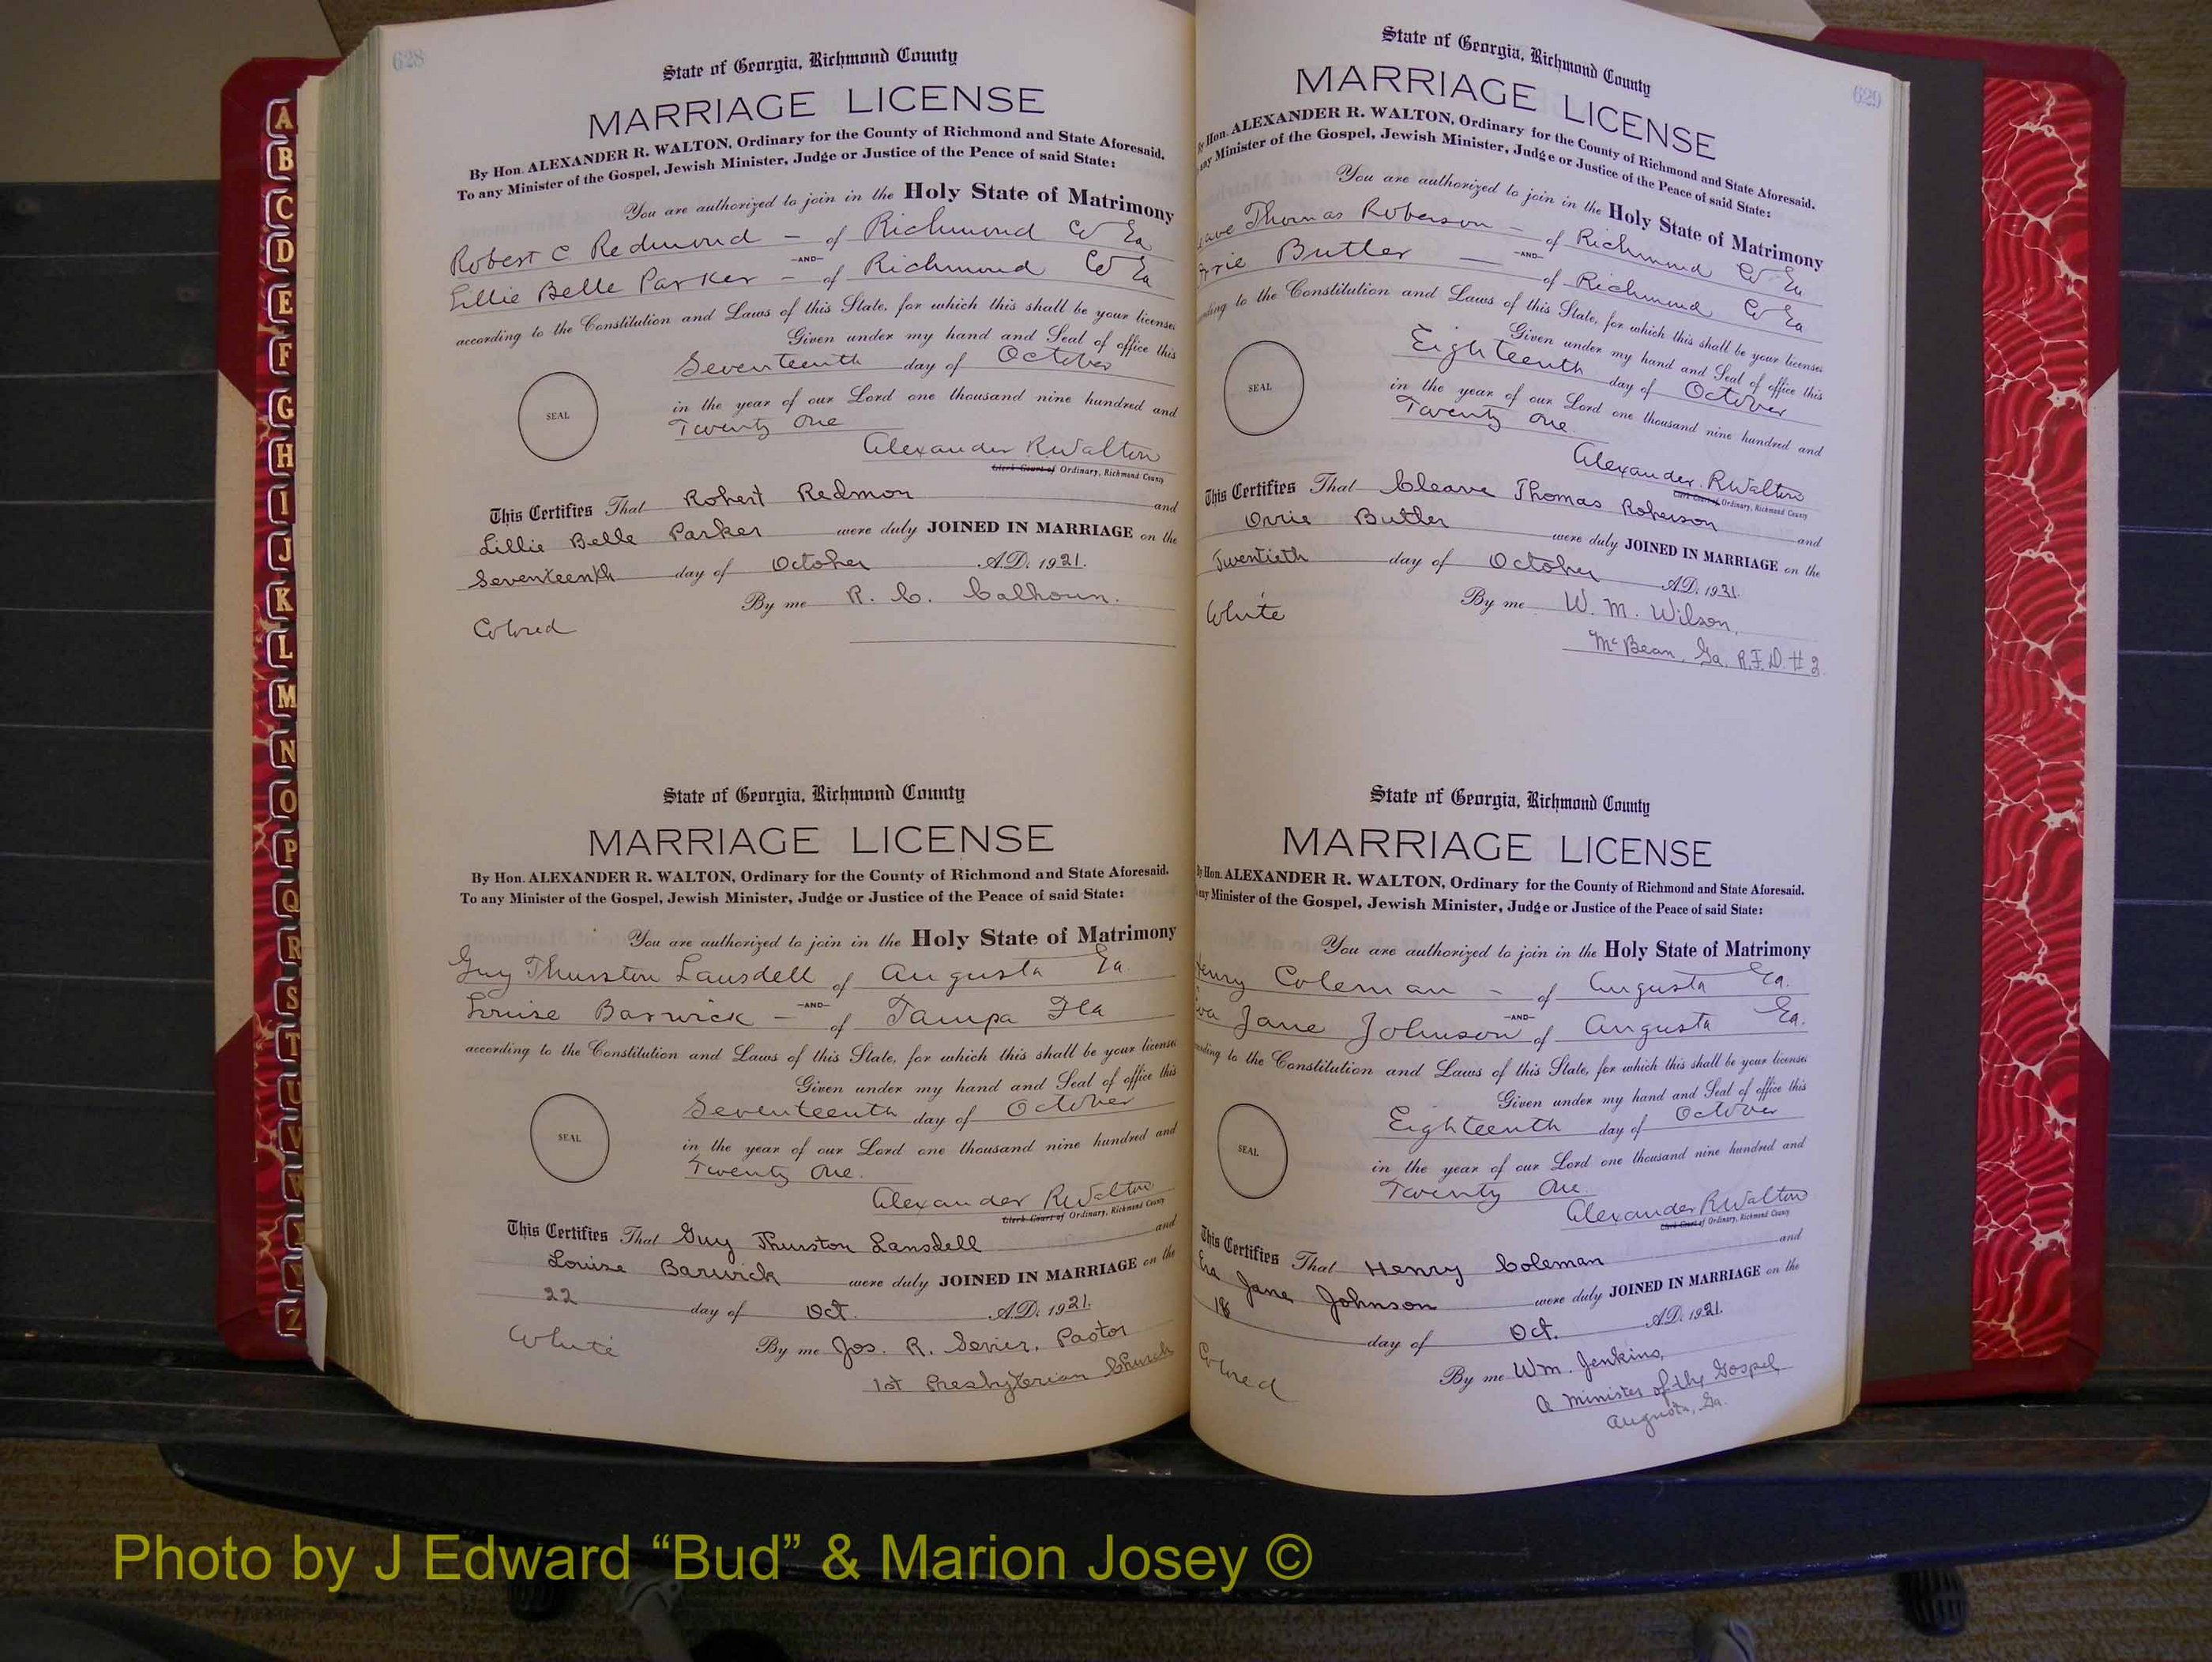 A
B
C
D
E
F
G
H
I
J
K
L
M
N
O
P
Q
R
S
T
U
V
W
Z
628
State of Georgia, Richmond County
MARRIAGE LICENSE
By Hon. ALEXANDER R. WALTON, Ordinary for the County of Richmond and State Aforesaid.
To any Minister of the Gospel, Jewish Minister, Judge or Justice of the Peace of said State:
You are authorized to join in the Holy State of Matrimony
Robert C Redmond - of Richmond Co Ga
-AND-
Lillie Belle Parker - of Richmond Co Ga
according to the Constitution and Laws of this State, for which this shall be your license
Given under my hand and Seal of office this
Seventeenth day of October
SEAL
in the year of our Lord one thousand nine hundred and
Twenty One
Alexander R Walton
Clerk Court of Ordinary, Richmond County
This Certifies That Robert Redmon and
Lillie Belle Parker were duly JOINED IN MARRIAGE on the
Seventeenth day of October A.D. 1921.
By me R. C. Calhoun.
Colored
State of Georgia, Richmond County
MARRIAGE LICENSE
By Hon. ALEXANDER R. WALTON, Ordinary for the County of Richmond and State Aforesaid.
To any Minister of the Gospel, Jewish Minister, Judge or Justice of the Peace of said State:
You are authorized to join in the Holy State of Matrimony
Guy Thurston Lansdell of Augusta Ga.
-AND-
Louise Barwick - of Tampa Fla
according to the Constitution and Laws of this State, for which this shall be your license
Given under my hand and Seal of office this
Seventeenth day of October
SEAL
in the year of our Lord one thousand nine hundred and
Twenty One.
Alexander R Walton
Clerk Court of Ordinary, Richmond County
This Certifies That Guy Thurston Lansdell and
Louise Barwick were duly JOINED IN MARRIAGE on the
22 day of Oct. A.D. 1921.
White By me Jos. R. Sevier, Pastor
1st Presbyterian Church
629
State of Georgia, Richmond County
MARRIAGE LICENSE
By Hon. ALEXANDER R. WALTON, Ordinary for the County of Richmond and State Aforesaid.
any Minister of the Gospel, Jewish Minister, Judge or Justice of the Peace of said State:
You are authorized to join in the Holy State of Matrimony
eave Thomas Roberson - of Richmond Co Ga
-AND-
rrie Butler - of Richmond Co Ga
ording to the Constitution and Laws of this State, for which this shall be your license
Given under my hand and Seal of office this
Eighteenth day of October
SEAL
in the year of our Lord one thousand nine hundred and
Twenty One.
Alexander R Walton
Clerk Court of Ordinary, Richmond County
This Certifies That Cleave Thomas Roberson and
Orrie Butler were duly JOINED IN MARRIAGE on the
Twentieth day of October A.D. 1921.
White By me W. M. Wilson,
McBean, Ga. R.F.D. # 2
State of Georgia, Richmond County
MARRIAGE LICENSE
By Hon. ALEXANDER R. WALTON, Ordinary for the County of Richmond and State Aforesaid.
any Minister of the Gospel, Jewish Minister, Judge or Justice of the Peace of said State:
You are authorized to join in the Holy State of Matrimony
Henry Coleman - of Augusta Ga.
-AND-
Jane Johnson of Augusta Ga.
ording to the Constitution and Laws of this State, for which this shall be your license
Given under my hand and Seal of office this
Eighteenth day of October
SEAL
in the year of our Lord one thousand nine hundred and
Twenty One
Alexander R Walton
Clerk Court of Ordinary, Richmond County
This Certifies That Henry Coleman and
Jane Johnson were duly JOINED IN MARRIAGE on the
18 day of Oct. A.D. 1921.
Colored By me Wm. Jenkins,
A Minister of the Gospel
Augusta, Ga.
Photo by J Edward “Bud” & Marion Josey ©